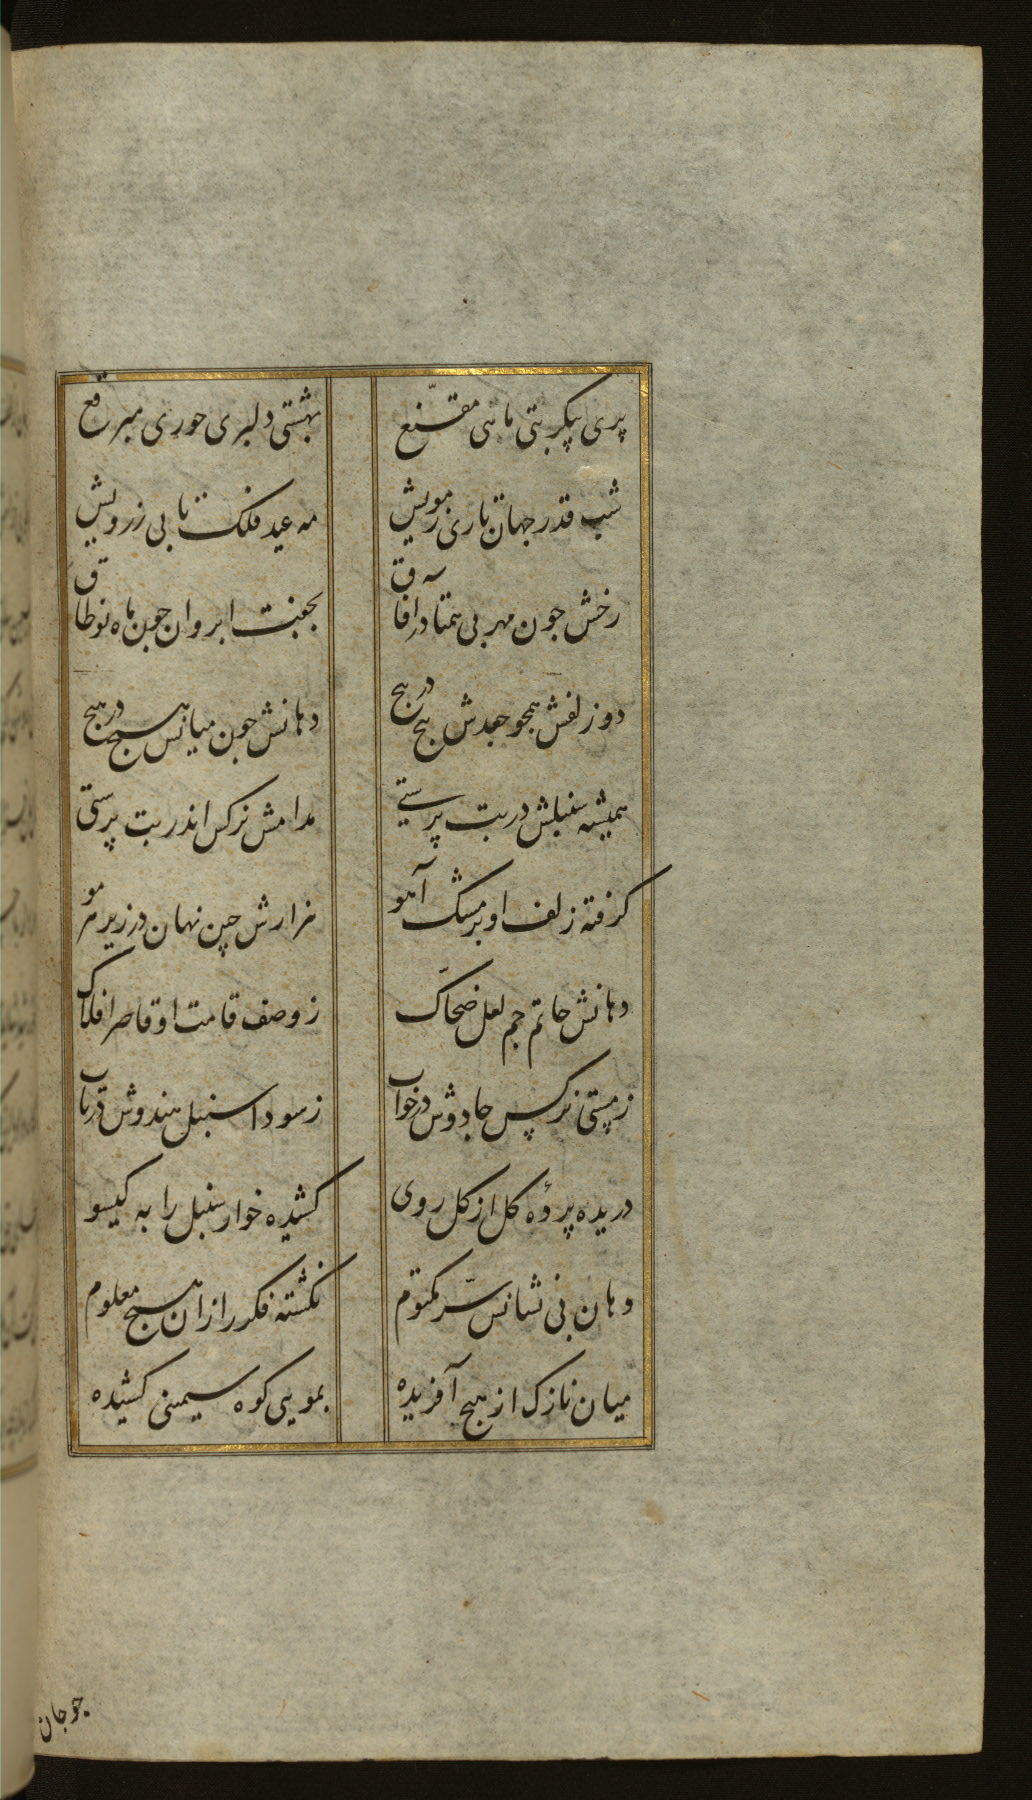 پری پیکر بتی ماهی مقنّع بهشتی دلبری حوری مبرقع
شب قدر جهان تاری ز مویش مه عید فلک تابی ز رویش
رخش جون مهر بی همتا در افاق بجفت ابروان جون ماه نو طاق
دو زلفش همجو جعدش پیج در پیج دهانش جون میانش هیج در هیج
همیشه سنبلش در بت پرستی مدامش نرکس اندر بت پرستی
کرفته زلف او بر مشک آهو هزارش چین نهان در زیر هر مو
دهانش خاتم جم لعل ضحاّک ز وصف قامت او قاصر افلاک
ز مستی نرکس جادوش در خواب ز سودا سنبل هندوش در تاب
دریده پردهٔ کل از کل روی کشیده خوار سنبل را به کیسو
دهان بی نشانش سرّ مکتوم نکشته فکر را زان هیج معلوم
میان نازک از هیج آفریده بمویی کوه سیمینی کشیده
جو جان